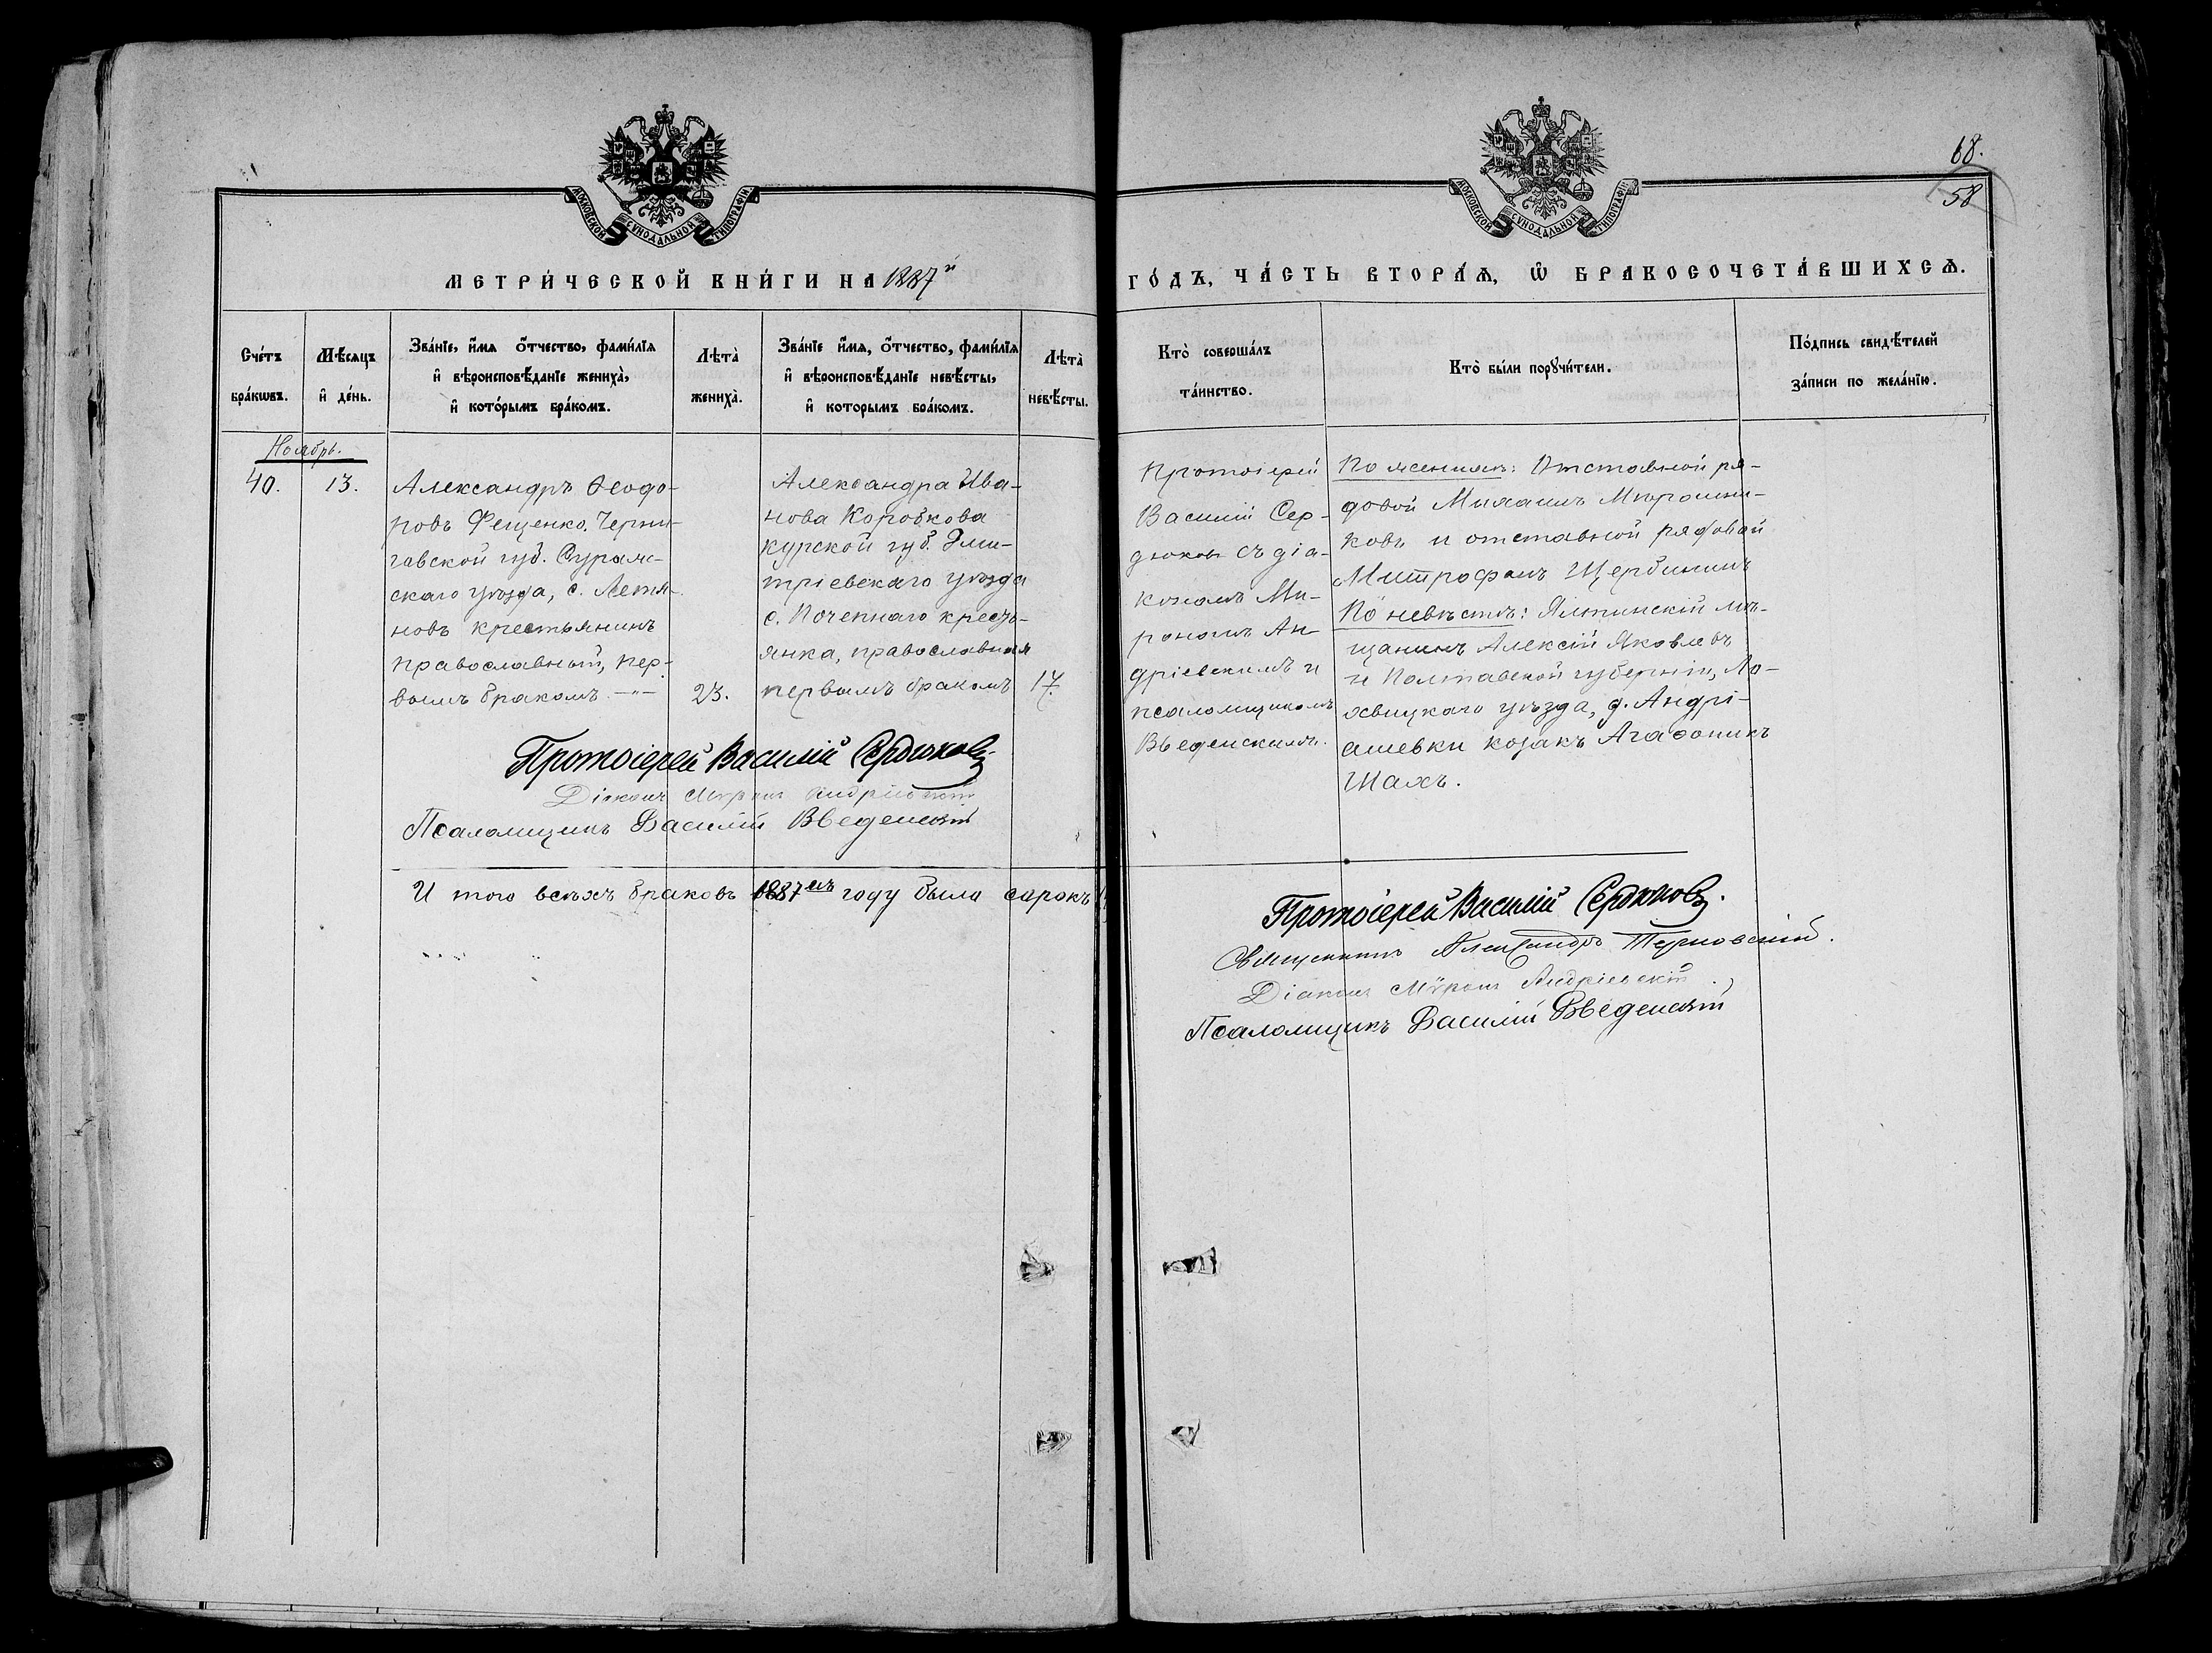 68.
58
МОСКОВСКОЙ СѴНОДАЛЬНОЙ ТИПОГРАФІИ.
МОСКОВСКОЙ СѴНОДАЛЬНОЙ ТИПОГРАФІИ.
МЕТРИ́ЧЕСКОЙ КНИ́ГИ НА 1887й
ГО́ДЪ, ЧА́СТЬ ВТОРА́Ѧ, Ѽ БРАКОСОЧЕТА́ВШИХСѦ.
Сче́тъ
бра́кѡвъ.
Мѣ́сяцъ
и҆ де́нь.
Зва́нїе, и҆́мя ѻ҆́тчество, фами́лїя
и҆ вѣроисповѣ́данїе жениха̀,
и҆ кото́рымъ бра́комъ.
Лѣта̀
жениха̀.
Зва́нїе и҆́мя, ѻ҆́тчество, фами́лїя
и҆ вѣроисповѣ́данїе невѣ́сты,
и҆ которымъ бра́комъ.
Лѣта̀
невѣ́сты.
Кто̀ соверша́лъ
та́инство.
Кто̀ бы́ли порꙋчи́тели.
По́дпись свидѣ́телей
за́писи по жела́нїю.
Ноябрь.
40.
13.
Александръ Ѳеодо-
ровъ Фещенко. Черни-
говской губ. Суражс-
скаго уѣзда, с. Летя-
новъ крестьянинъ
православный, пер-
вымъ бракомъ. -"-
23.
Александра Ива-
нова Коробкова
Курской губ. Дми-
тріевскаго уѣзда
с. Почепнаго кресть-
янка, православная
первымъ бракомъ
17.
Протоіерей
Василій Сер-
дюковъ съ діа-
кономъ Ми-
рономъ Ан-
дріевскимъ и
псаломщикомъ
Введенскимъ.
По женихѣ: Отставной ря-
довой Михаилъ Мирошни-
ковъ и отставной рядовой
Митрофанъ Щербининъ
По невѣстѣ: Ялтинскій мѣ-
щанинъ Алексій Яковлевъ
и Полтавской губерніи, Ло-
хвицкаго уѣзда, д. Андрі-
ашевки козакъ Агаѳоникъ
Шахъ.
Протоіерей Василій Сердюковъ
Діаконъ Мѵронъ Андріевскій
Псаломщикъ Василій Введенскій
И того всѣхъ браковъ 1887мъ году было сорокъ
Протоіерей Василій Сердюковъ.
Священникъ Александръ Терновскій.
Діаконъ Мѵронъ Андріевскій
Псаломщикъ Василій Введенскій